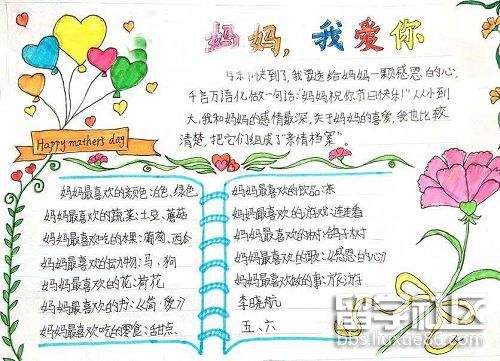 妈妈，我爱你
快到了，我要送给妈妈一颗感恩的心。
千言万语化做一句话："妈妈祝你节日快乐！"从小到
大，我和妈妈的感情最深。关于妈妈的喜爱，我也比较
清楚，把它们组成了"亲情档案"。
Happy mathers day
妈妈最喜欢的颜色：白色、绿色
妈妈最喜欢的蔬菜：土豆、蘑菇
妈妈最喜欢吃的水果：葡萄、西瓜
妈妈最喜欢的动物：马、狗
妈妈最喜欢的花：荷花
妈妈最喜欢的书：《简·爱》
妈妈最喜欢吃的零食：甜点
妈妈最喜欢的饮品：茶
妈妈最喜欢的游戏：连连看
妈妈最喜欢的树：椰子树
妈妈最喜欢的歌：《感恩的心》
妈妈最喜欢做的事：旅游
李晓航
五、六
留学社区
bbs.liuxue86.com